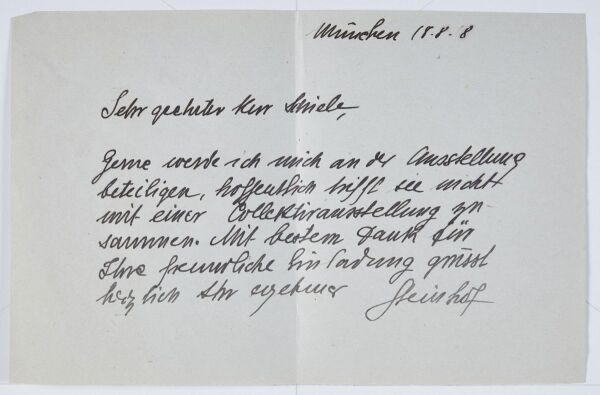 München 18.8.8
Sehr geehrter Herr Schiele,
Gerne werde ich mich an der Ausstellung
beteiligen, hoffentlich trifft sie nicht
mit einer Collektivausstellung zu-
sammen. Mit bestem Dank für
Ihre freundliche Einladung grüsst
herzlich Ihr ergebener Steinhof